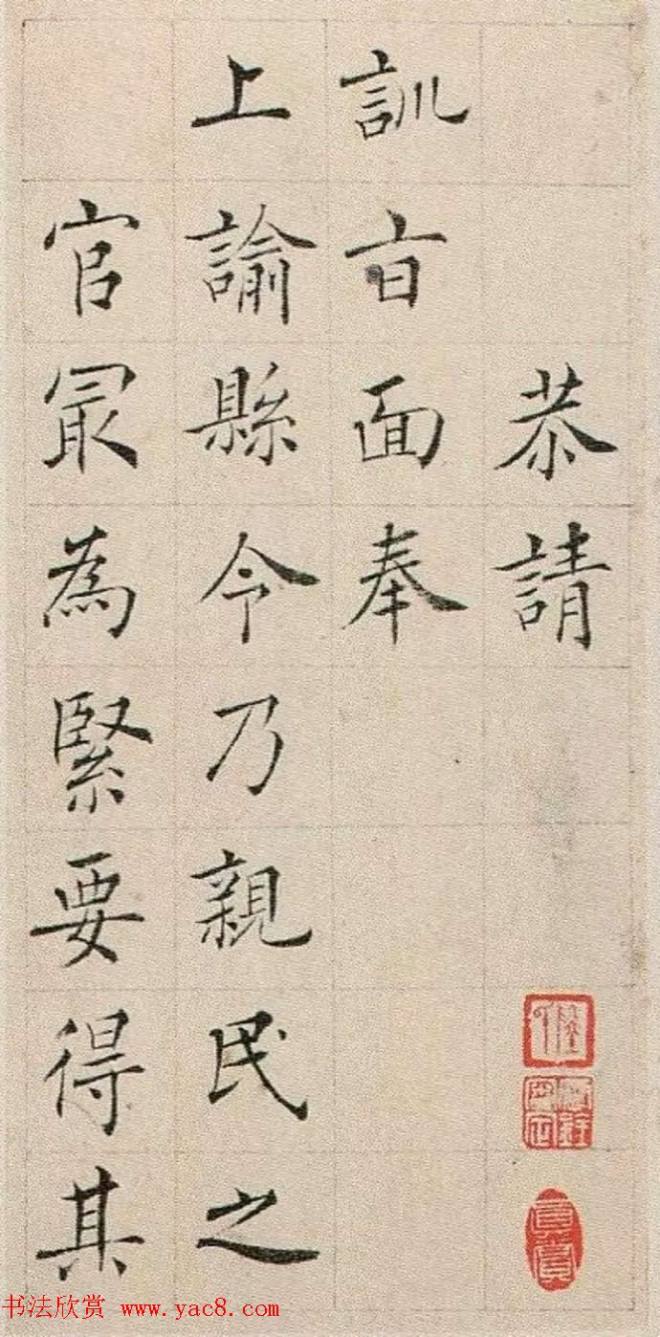 恭請
訓㫖面奉
上諭縣令乃親民之
官冣為緊要得其
书法欣赏 www.yac8.com